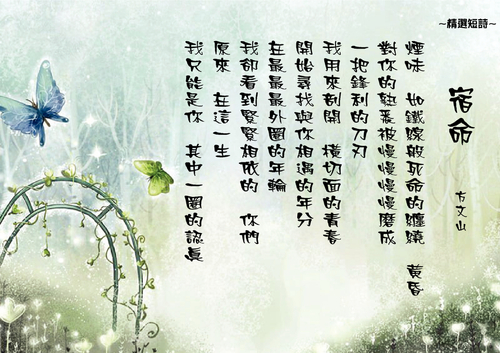 ~精選短詩~
宿命
方文山
煙味 如鐵線般死命的纏繞 黃昏
對你的熱愛被慢慢慢慢磨成
一把鋒利的刀刃
我用來剖開 橫切面的青春
開始尋找與你相遇的年分
在最最最外圈的年輪
我卻看到緊緊相依的 你們
原來 在這一生
我只能是你 其中一圈的認真